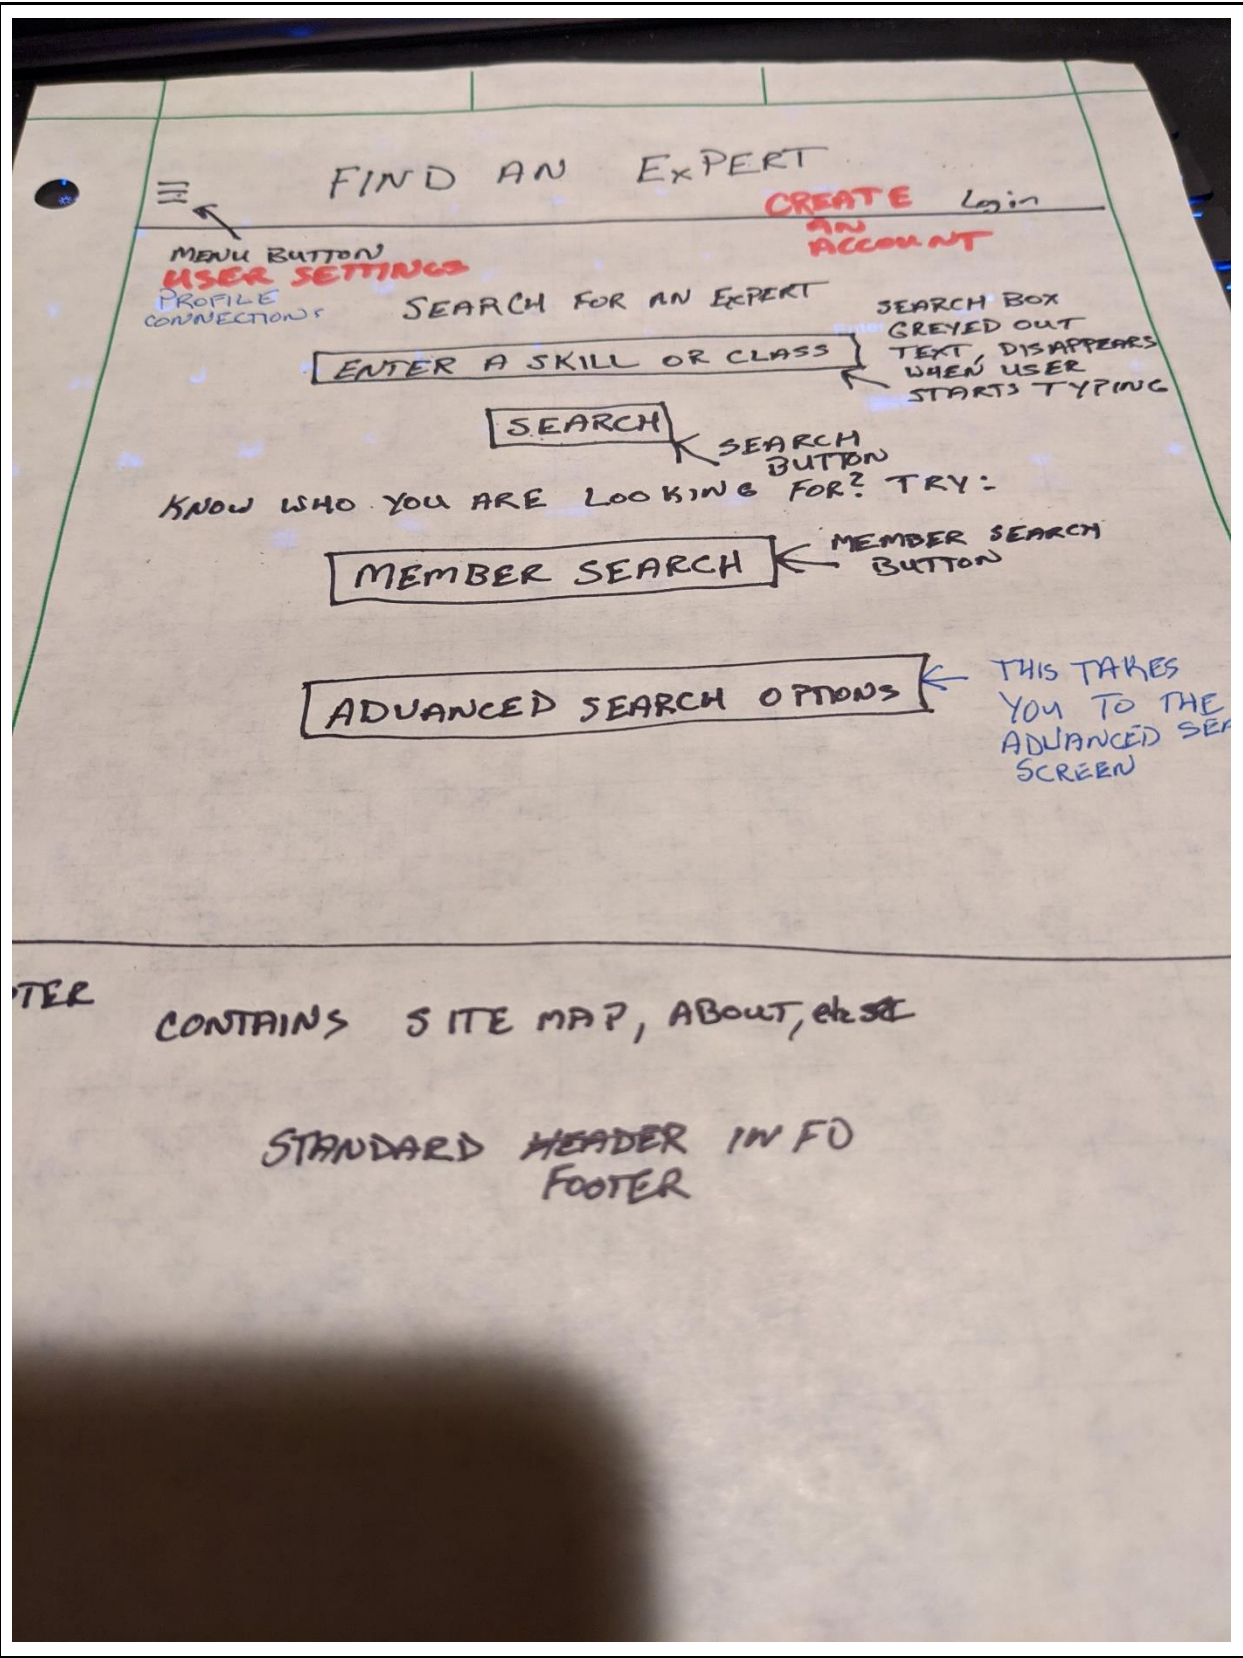 FIND AN ExPERT
CREATE AN ACCOUNT
Login
MENU BUTTON
USER SETTINGS
PROFILE
CONNECTIONS
SEARCH FOR AN ExPERT
SEARCH BOX
GREYED OUT
TEXT, DISAPPEARS
WHEN USER
STARTS TYPING
ENTER A SKILL OR CLASS
SEARCH
SEARCH
BUTTON
KNOW WHO YOU ARE LOOKING FOR? TRY:
MEMBER SEARCH
MEMBER SEARCH
BUTTON
ADVANCED SEARCH OPTIONS
THIS TAKES
YOU TO THE
ADVANCED SEA
SCREEN
TER
CONTAINS SITE MAP, ABOUT, etc
STANDARD HEADER INFO
FOOTER